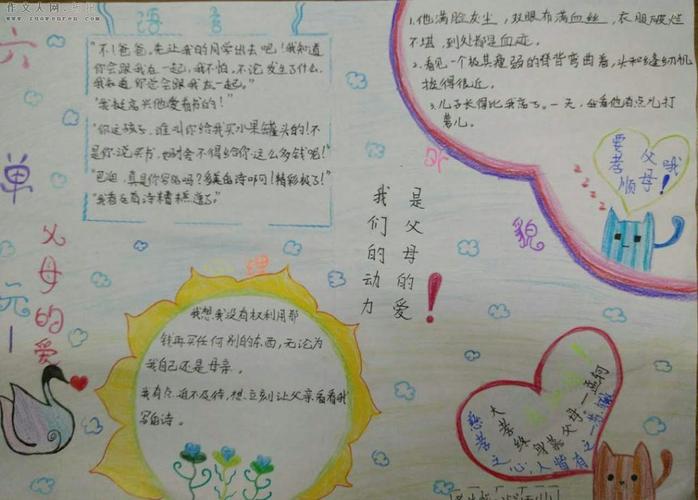 作文人网
www.zuowenren.com
六单元
父母的爱
语言
"不!爸爸,先让我的同学出去吧!我知道
你会跟我在一起,我不怕。不论发生了什么,
我知道你总会跟我在一起。"
"我挺高兴他爱看书的!"
"你这孩子,谁叫你给我买水果罐头的!不
是你说买书,妈才舍不得给你这么多钱呢!"
"巴迪,真是你写的吗?多美的诗呵!精彩极了!"
"我看这首诗糟糕透了"
1.他满脸灰尘,双眼布满血丝,衣服破烂
不堪,到处都是血迹。
2.看见一个极其瘦弱的脊背弯曲着,头和缝纫机
挨得很近。
3.儿子长得比我高了。一天,
薯儿。
要孝顺
父母哦!
外貌
是父母的爱
我们的动力!
心理
我想我没有权利用那
钱再买任何别的东西,无论为
我自己还是母亲。
我有点迫不及待,想立刻让父亲看看我
写的诗。
慈孝之心,人皆有之
大孝终身慕父母